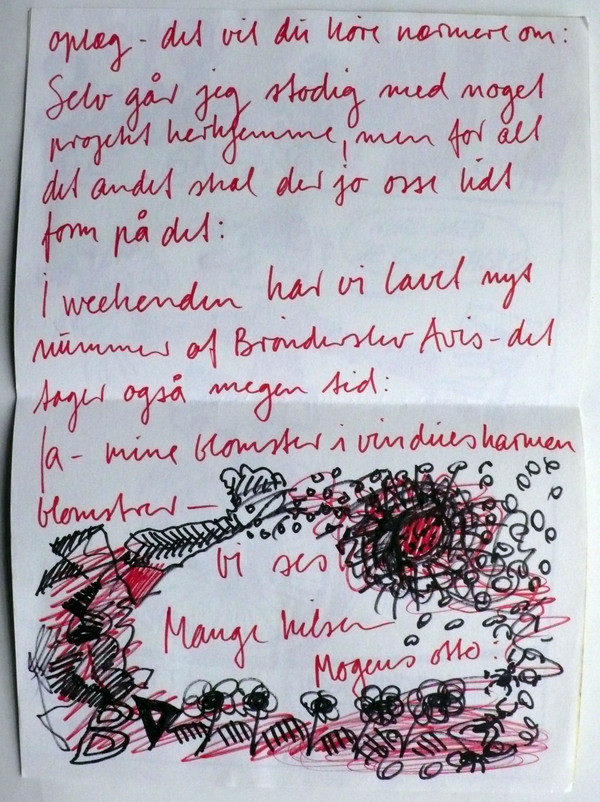 oplæg - det vil du höre nærmere om:
Selv går jeg stadig med noget
projekt herhjemme, men for alt
det andet skal der jo osse lidt
form på det:
I weekenden har vi lavet nyt
nummer af Brønderslev Avis - det
tager også megen tid:
Ja - mine blomster i vindueskarmen
blomstrer -
Vi ses
Mange hilsen
Mogens otto: